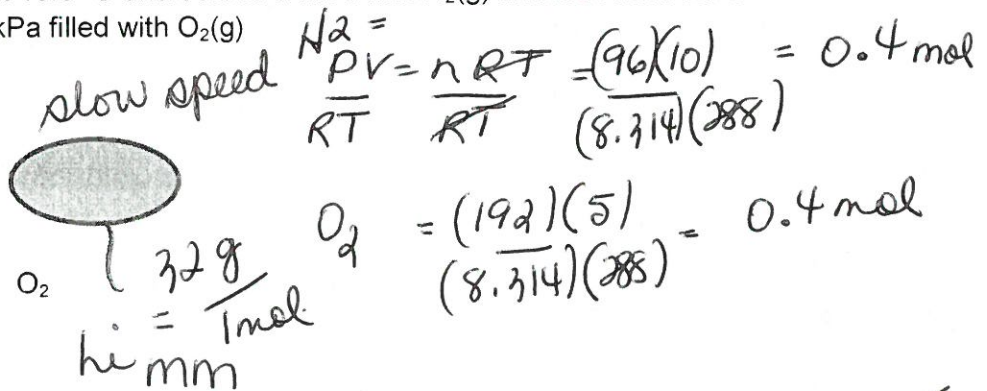 kPa filled with O₂(g)
slow speed
H2 =
PV/RT = nRT/RT = (96)(10)/(8.314)(288) = 0.4 mol
O₂ = (192)(5)/(8.314)(288) = 0.4 mol
O₂
32g/1mol
=
hi mm